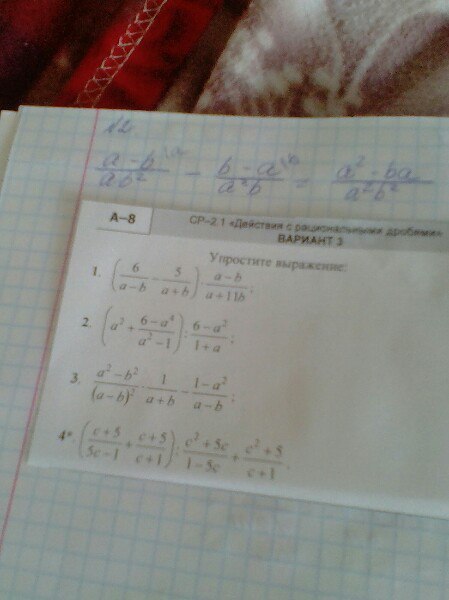 №2.
(a - b)/(ab²) - (b - a)/(a²b) = (a² - ba)/(a²b²)
А–8
СР–2.1 «Действия с рациональными дробями»
ВАРИАНТ 3
Упростите выражение:
1. (6/(a-b) - 5/(a+b)) · (a-b)/(a+11b);
2. (a² + (6-a⁴)/(a²-1)) : (6-a²)/(1+a);
3. (a²-b²)/(a-b)² · 1/(a+b) - (1-a²)/(a-b);
4*. ((c+5)/(5c-1) + (c+5)/(c+1)) : (c²+5c)/(1-5c) + (c²+5)/(c+1).